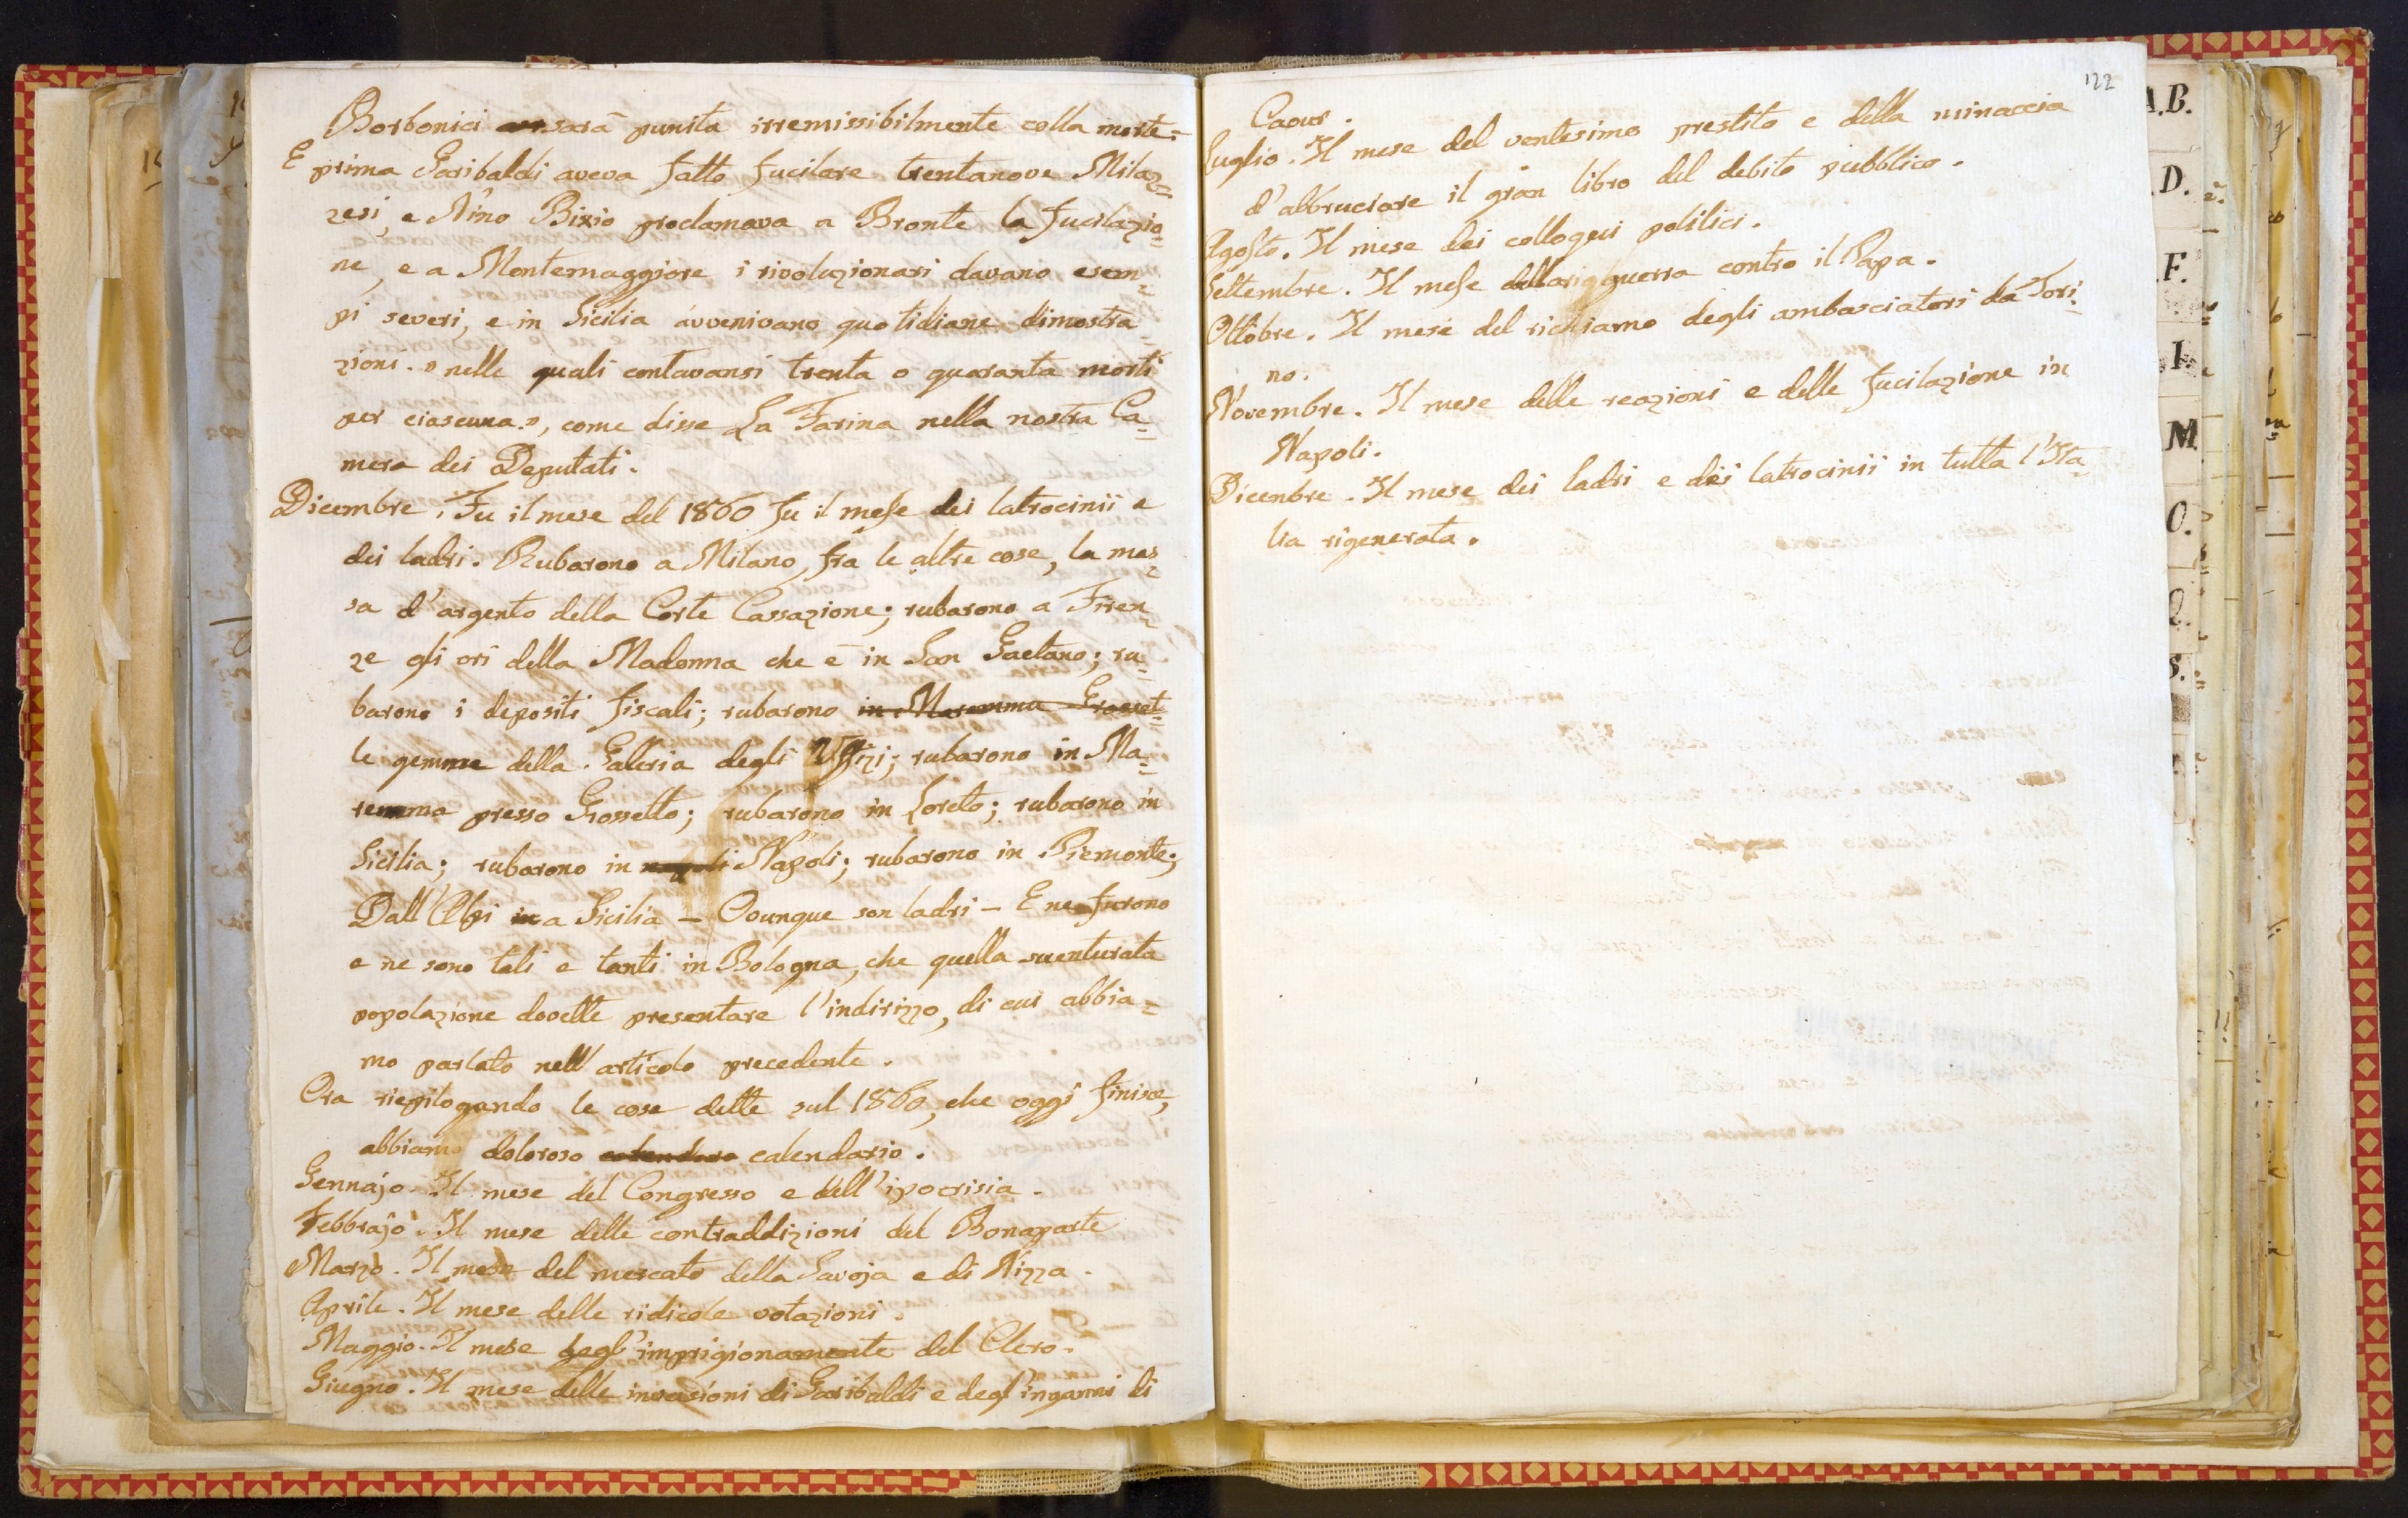 Borbonici sarà punita irremissibilmente colla morte =
E prima Garibaldi aveva fatto fucilare trentanove Milaz=
zesi, e Nino Bixio proclamava a Bronte la fucilazio=
ne, e a Montemaggiore i rivoluzionari davano esem=
pi severi, e in Sicilia avvenivano quotidiane dimostra=
zioni. » nelle quali contavansi trenta o quaranta morti
per ciascuna.», come disse La Farina nella nostra Ca=
mera dei Deputati.
Dicembre. Fu il mese del 1860 fu il mese dei latrocinii e
dei ladri. Rubarono a Milano, fra le altre cose, la mas=
sa d'argento della Corte Cassazione; rubarono a Firen=
ze gli ori della Madonna che è in San Gaetano; ru=
barono i depositi fiscali; rubarono in Maremma Grosset=
le gemme della Galeria degli Uffizi; rubarono in Ma=
remma presso Grossetto; rubarono in Loreto; rubarono in
Sicilia; rubarono in napoli Napoli; rubarono in Piemonte;
Dall'Alpi in a Sicilia – Ovunque son ladri – E ne furono
e ne sono tali e tanti in Bologna, che quella sventurata
popolazione dovette presentare l'indirizzo, di cui abbia=
mo parlato nell'articolo precedente.
Ora riepilogando le cose dette sul 1860, che oggi finisce,
abbiamo doloroso calendario.
Gennajo. Il mese del Congresso e dell'ipocrisia.
Febbrajo. Il mese delle contraddizioni del Bonaparte
Marzo. Il mese del mercato della Savoja e di Nizza.
Aprile. Il mese delle ridicole votazioni.
Maggio. Il mese degl'imprigionamente del Clero.
Giugno. Il mese delle invasioni di Garibaldi e degl'inganni di
122
Caour.
Luglio. Il mese del ventesimo prestito e della minaccia
d'abbruciare il gran libro del debito pubblico.
Agosto. Il mese dei colloqui politici.
Settembre. Il mese guerra contro il Papa.
Ottobre. Il mese del richiamo degli ambasciatori da Tori=
no.
Novembre. Il mese delle reazioni e delle fucilazione in
Napoli.
Dicembre. Il mese dei ladri e dei latrocinii in tutta l'Ita=
lia rigenerata.
A.B.
.D.
.F.
.I.
M.
O.
Q.
S.